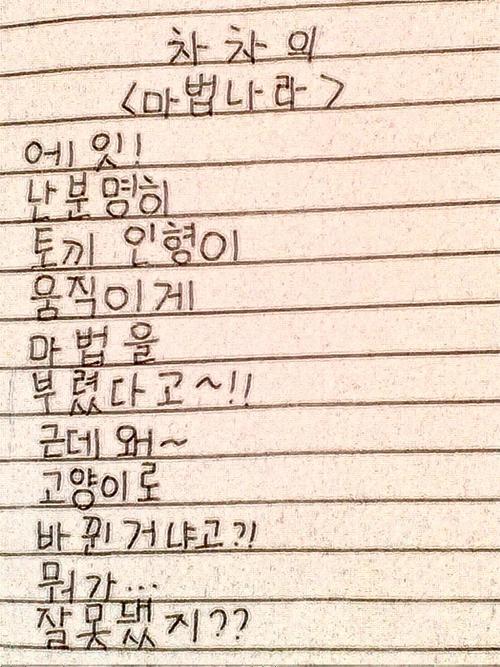 차 차 의
<마법나라>
에잇!
난분명히
토끼 인형이
움직이게
마법을
부렸다고~!!
근데 왜~
고양이로
바뀐거냐고?!
뭐가...
잘못됐지??